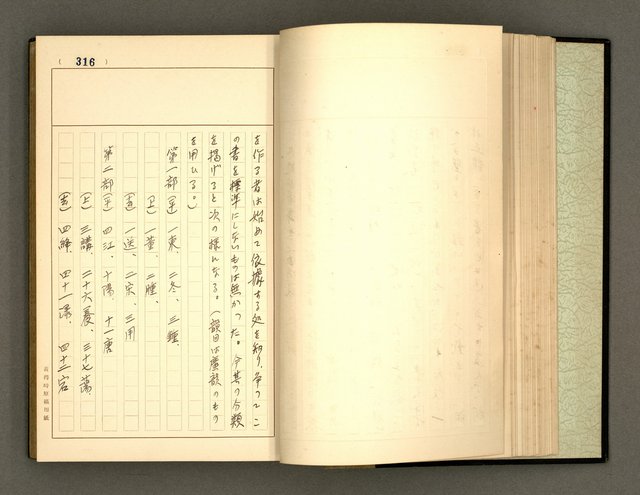 ( 316 )
を作る者は始めて依據する処を知り、争つてこ
の書を標準にしないものは無かつた。今其の分類
を揭げると次の様になる。(韻目は廣韻のもの
を用ひる。)
第一部(平)一東、二冬、三鍾、
(上)一董、二腫、
(去)一送、二宋、三用
第二部(平)四江、十陽、十一唐
(上)三講、三十六養、三十七蕩、
(去)四絳、四十一漾、四十二宕
原稿用紙